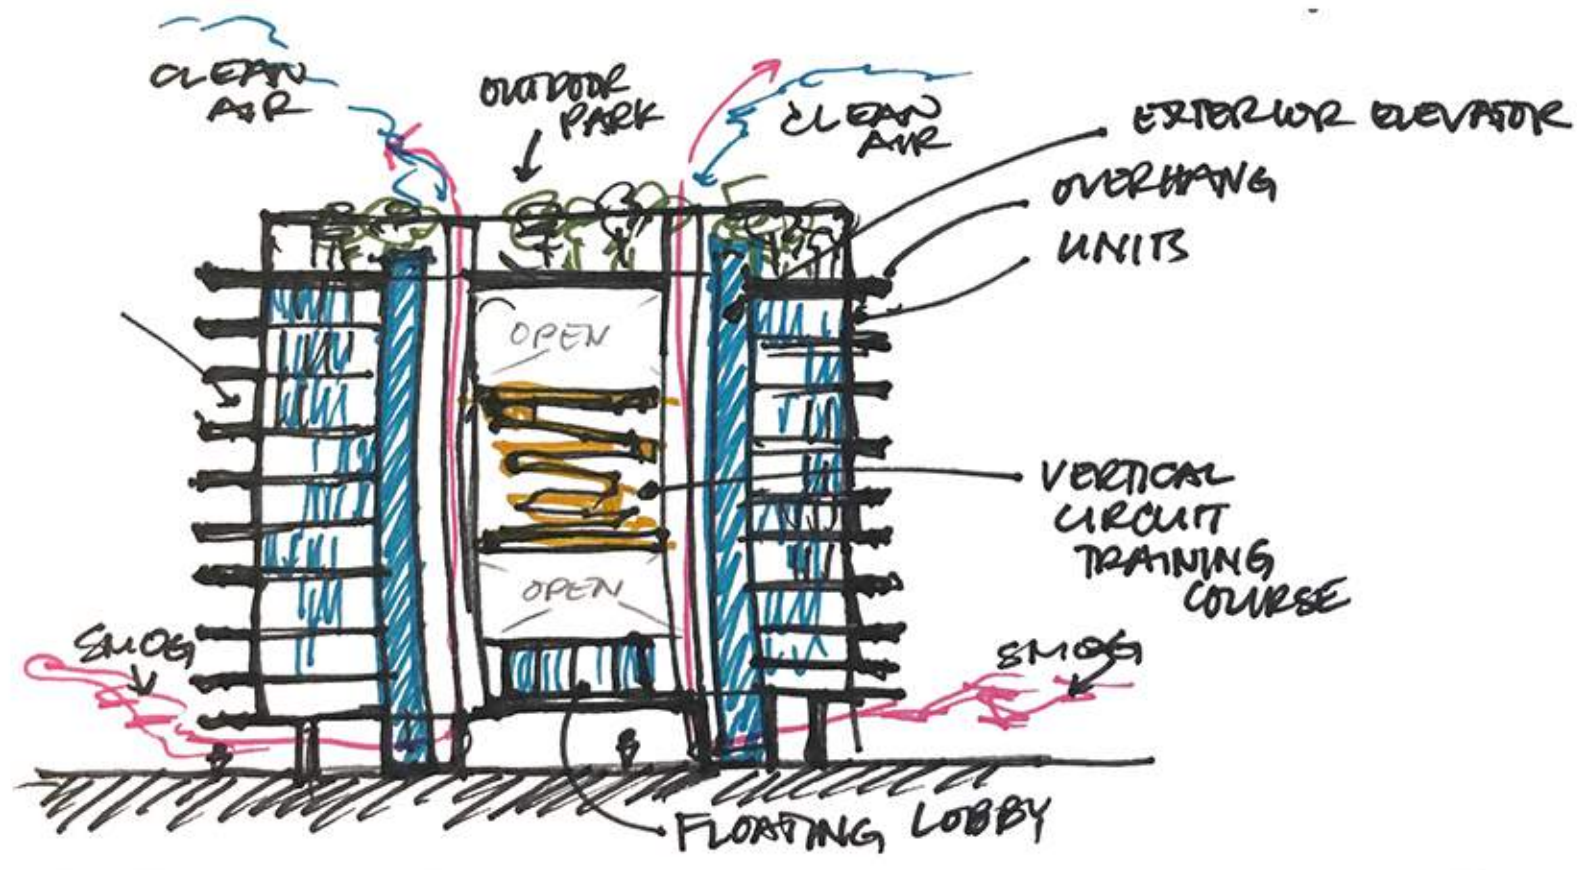 CLEAN
AIR
OUTDOOR
PARK
CLEAN
AIR
EXTERIOR ELEVATOR
OVERHANG
UNITS
OPEN
VERTICAL
CIRCUIT
TRAINING
COURSE
OPEN
SMOG
SMOG
FLOATING LOBBY